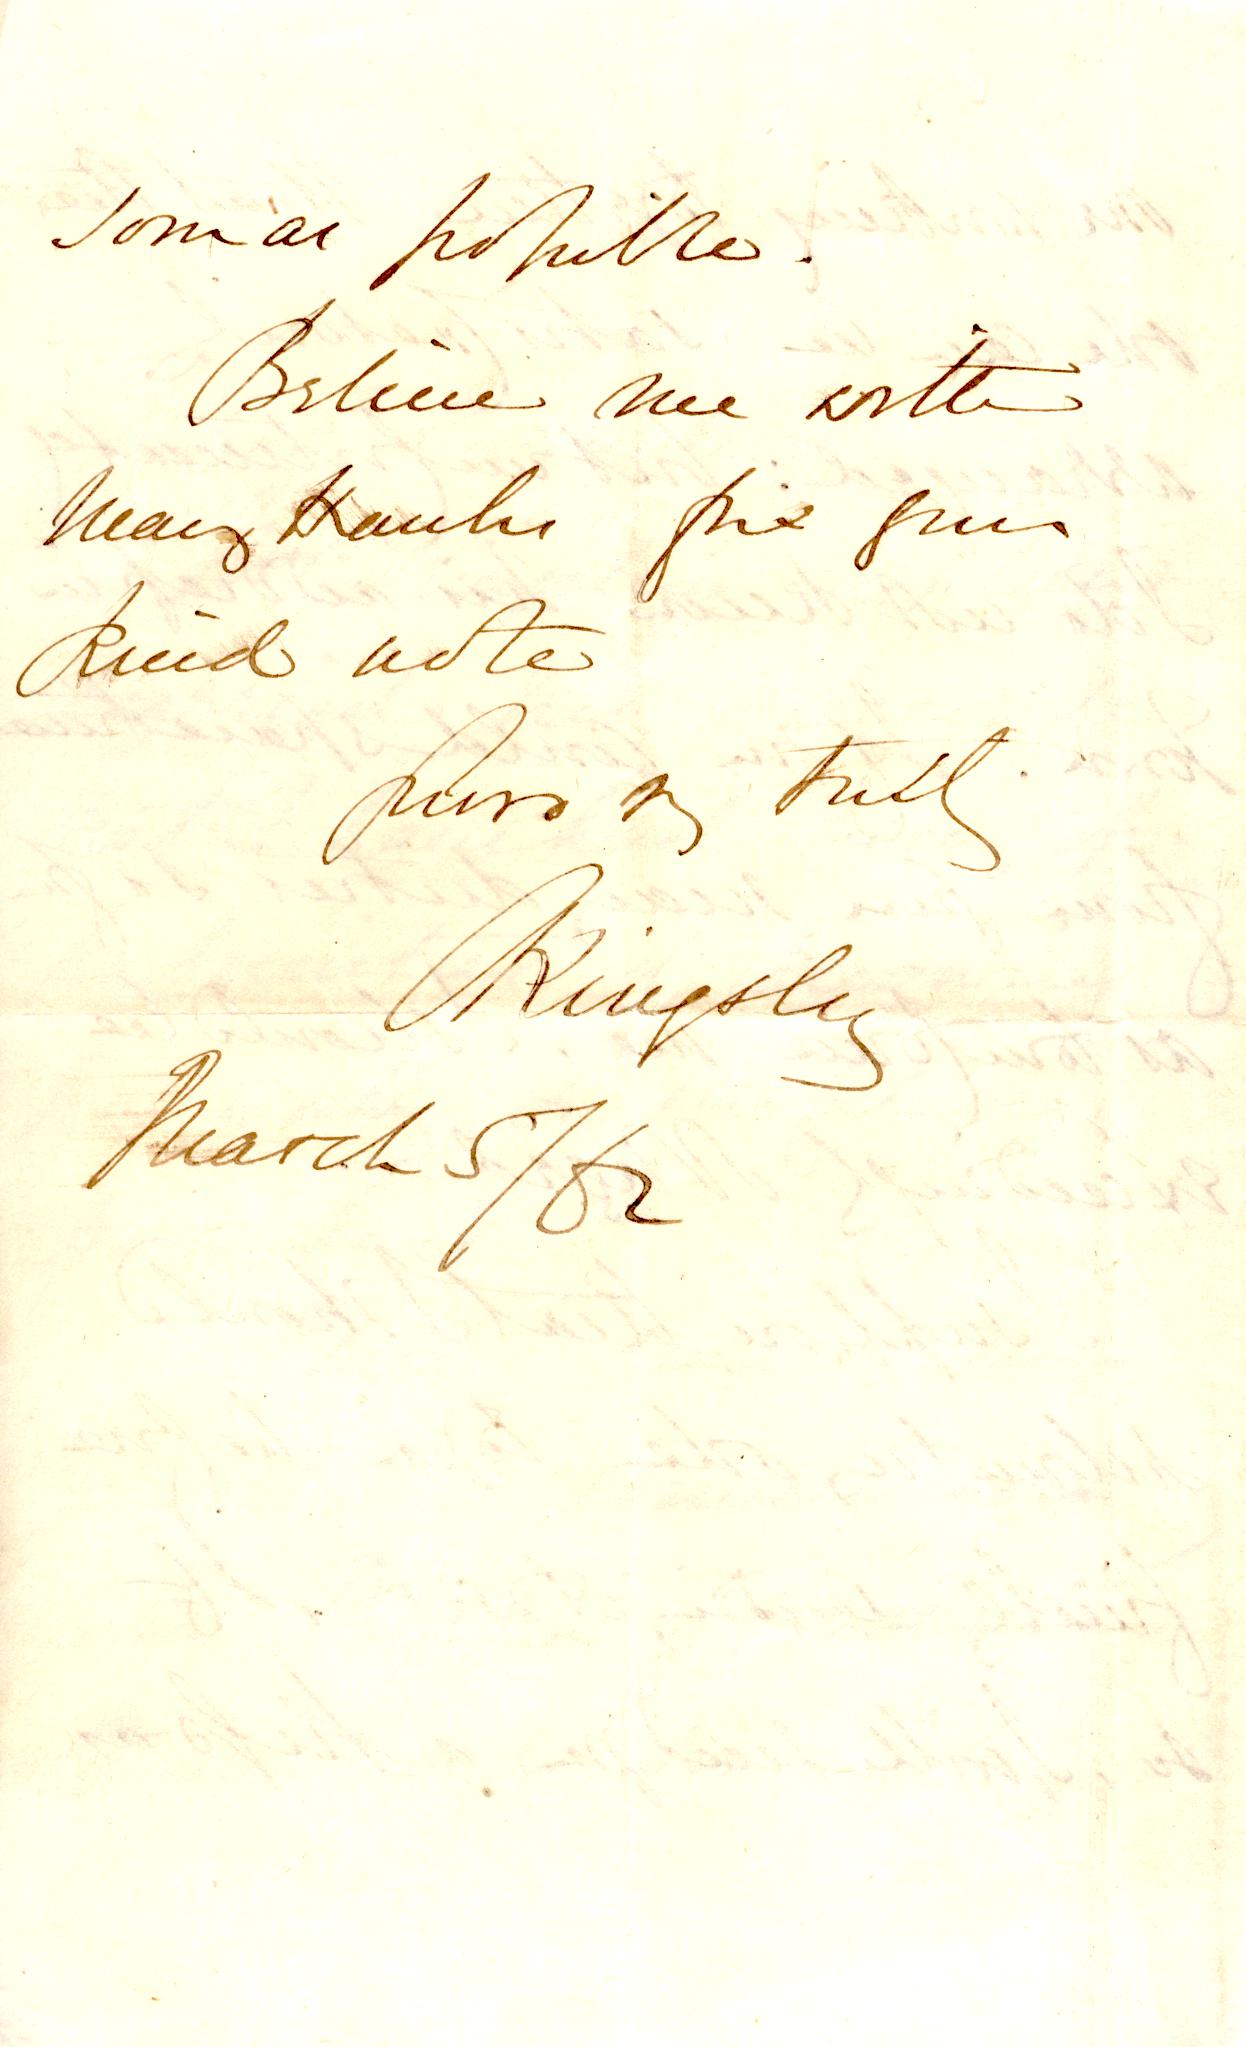 soon as possible.
Believe me with
Many thanks for your
kind note
Yours vy truly
CKingsley
March 5/62